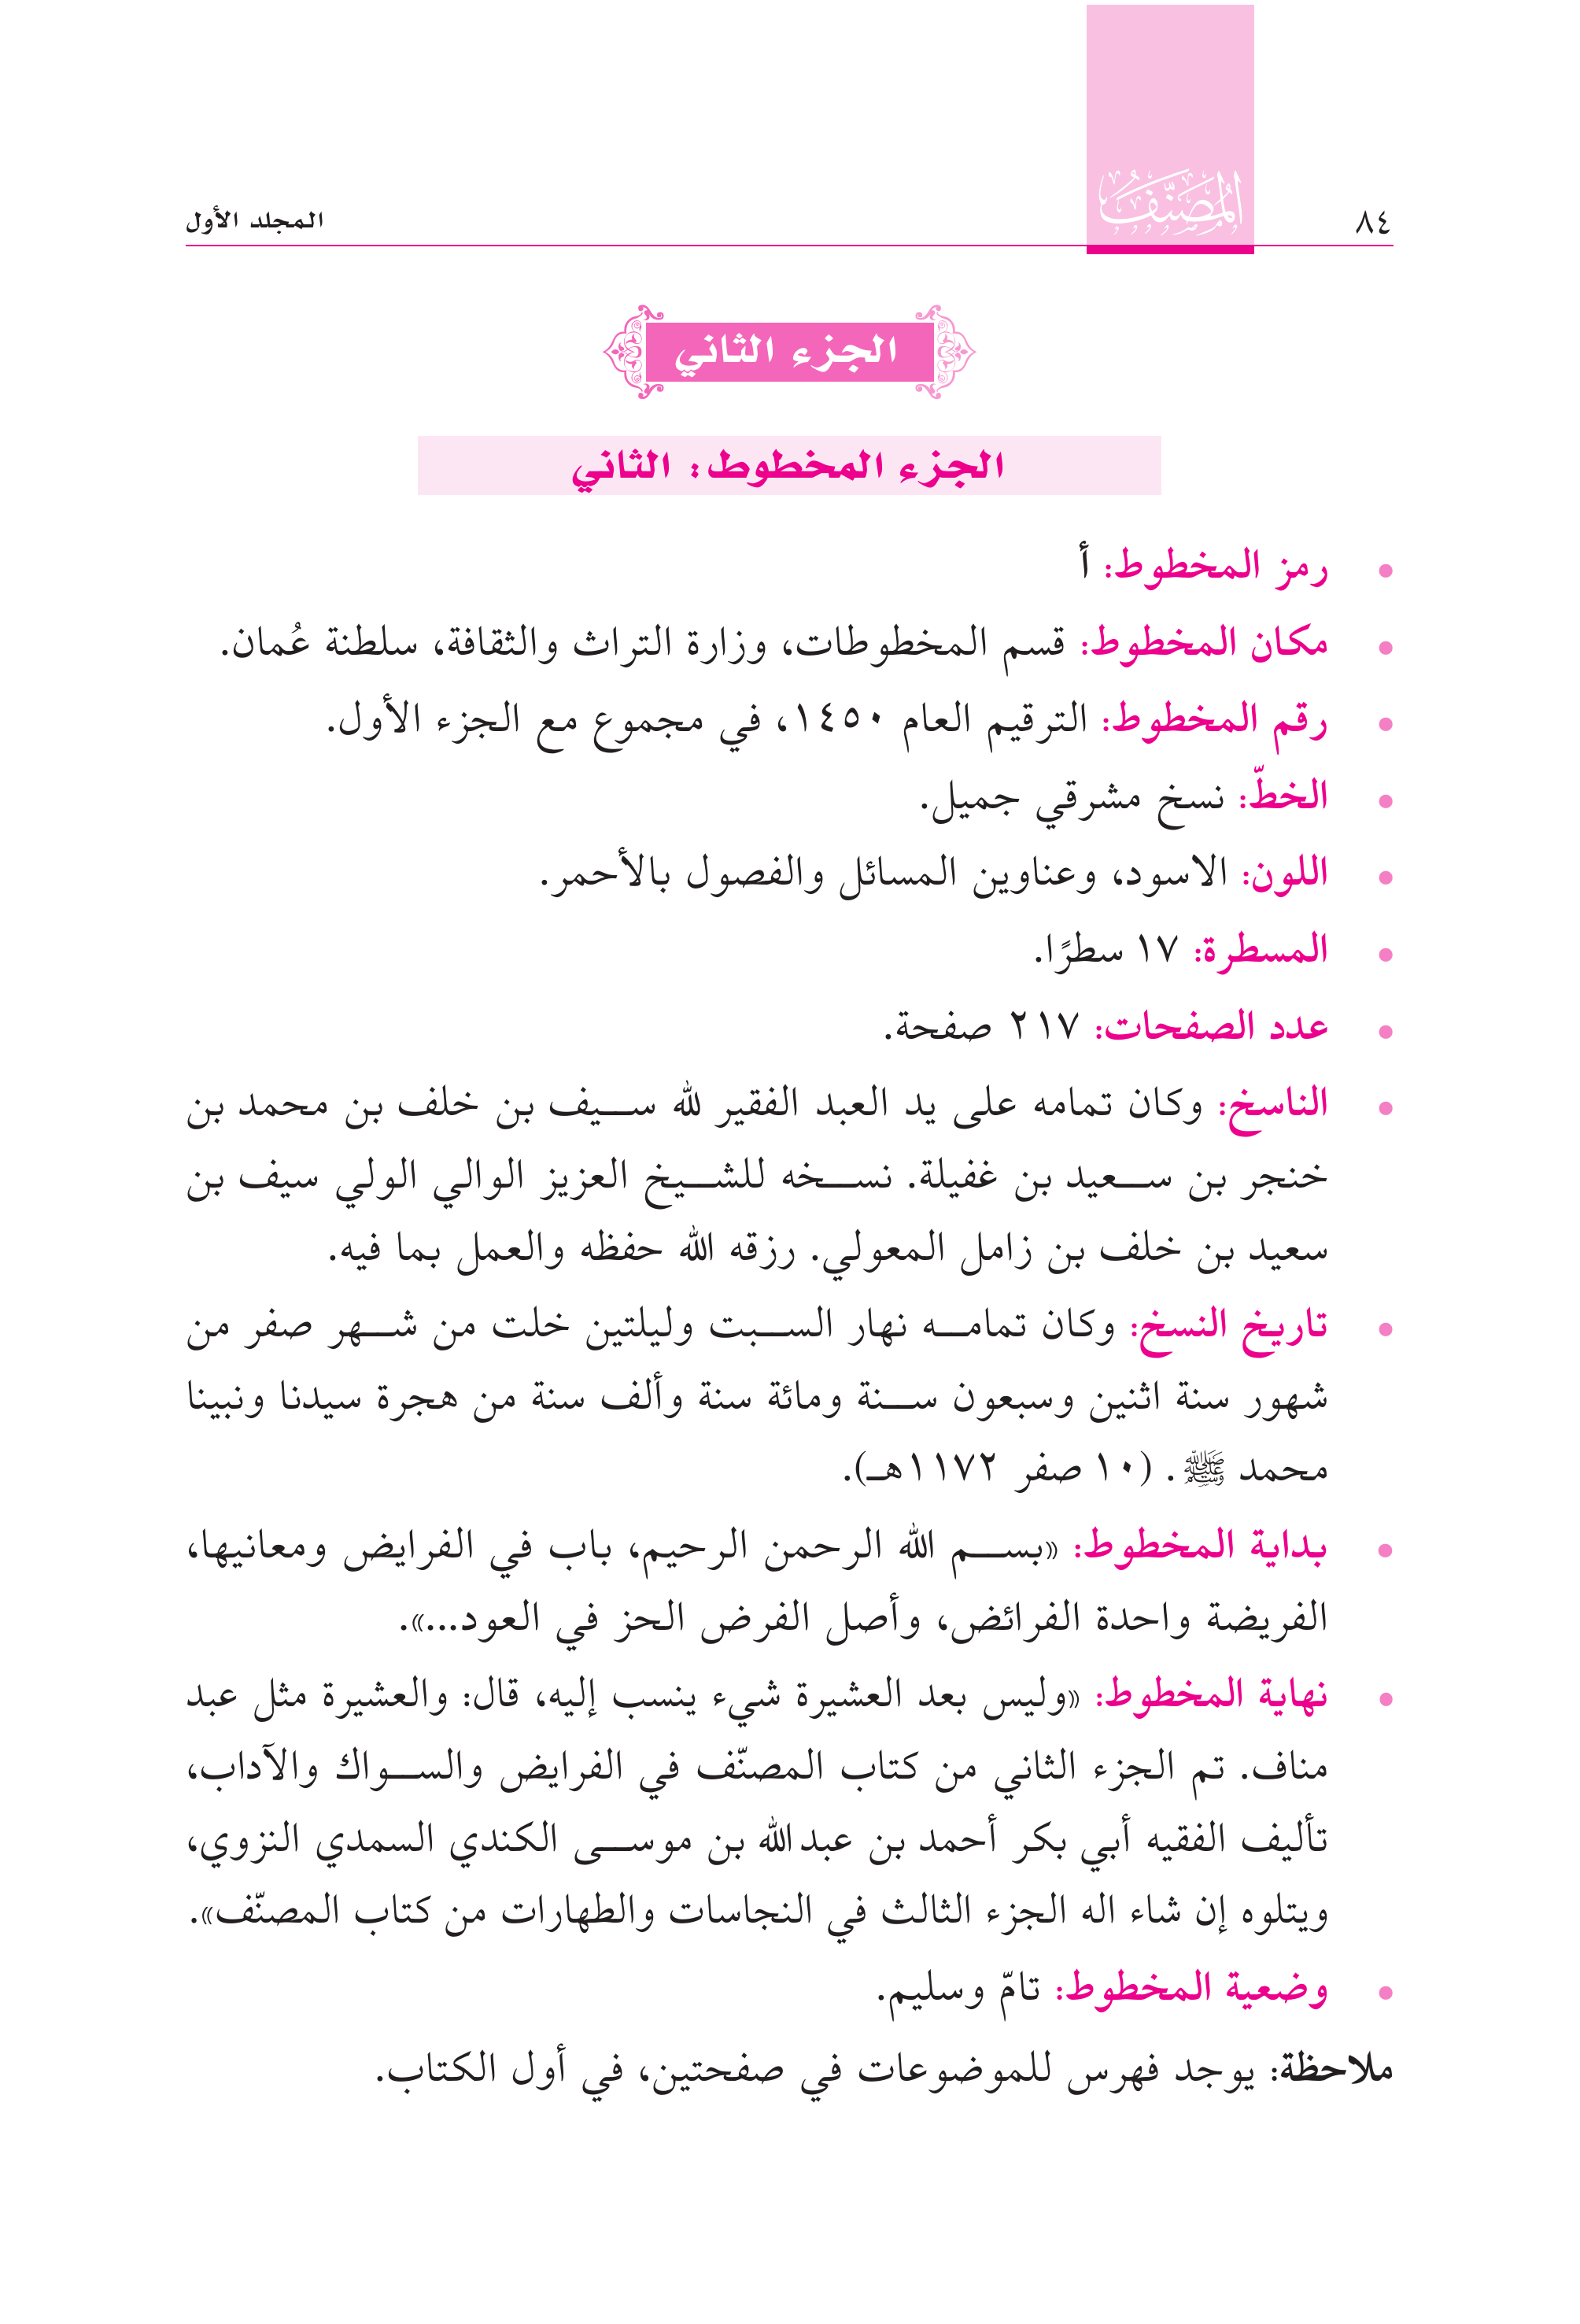 ٨٤
المُصَنَّف
المجلد الأول
الجزء الثاني
الجزء المخطوط: الثاني
• رمز المخطوط: أ
• مكان المخطوط: قسم المخطوطات، وزارة التراث والثقافة، سلطنة عُمان.
• رقم المخطوط: الترقيم العام ١٤٥٠، في مجموع مع الجزء الأول.
• الخطّ: نسخ مشرقي جميل.
• اللون: الاسود، وعناوين المسائل والفصول بالأحمر.
• المسطرة: ١٧ سطرًا.
• عدد الصفحات: ٢١٧ صفحة.
• الناسخ: وكان تمامه على يد العبد الفقير لله سيف بن خلف بن محمد بن
خنجر بن سعيد بن غفيلة. نسخه للشيخ العزيز الوالي الولي سيف بن
سعيد بن خلف بن زامل المعولي. رزقه الله حفظه والعمل بما فيه.
• تاريخ النسخ: وكان تمامه نهار السبت وليلتين خلت من شهر صفر من
شهور سنة اثنين وسبعون سنة ومائة سنة وألف سنة من هجرة سيدنا ونبينا
محمد ﷺ. (١٠ صفر ١١٧٢هـ).
• بداية المخطوط: «بسم الله الرحمن الرحيم، باب في الفرايض ومعانيها،
الفريضة واحدة الفرائض، وأصل الفرض الحز في العود...».
• نهاية المخطوط: «وليس بعد العشيرة شيء ينسب إليه، قال: والعشيرة مثل عبد
مناف. تم الجزء الثاني من كتاب المصنّف في الفرايض والسواك والآداب،
تأليف الفقيه أبي بكر أحمد بن عبدالله بن موسى الكندي السمدي النزوي،
ويتلوه إن شاء اله الجزء الثالث في النجاسات والطهارات من كتاب المصنّف».
• وضعية المخطوط: تامّ وسليم.
ملاحظة: يوجد فهرس للموضوعات في صفحتين، في أول الكتاب.